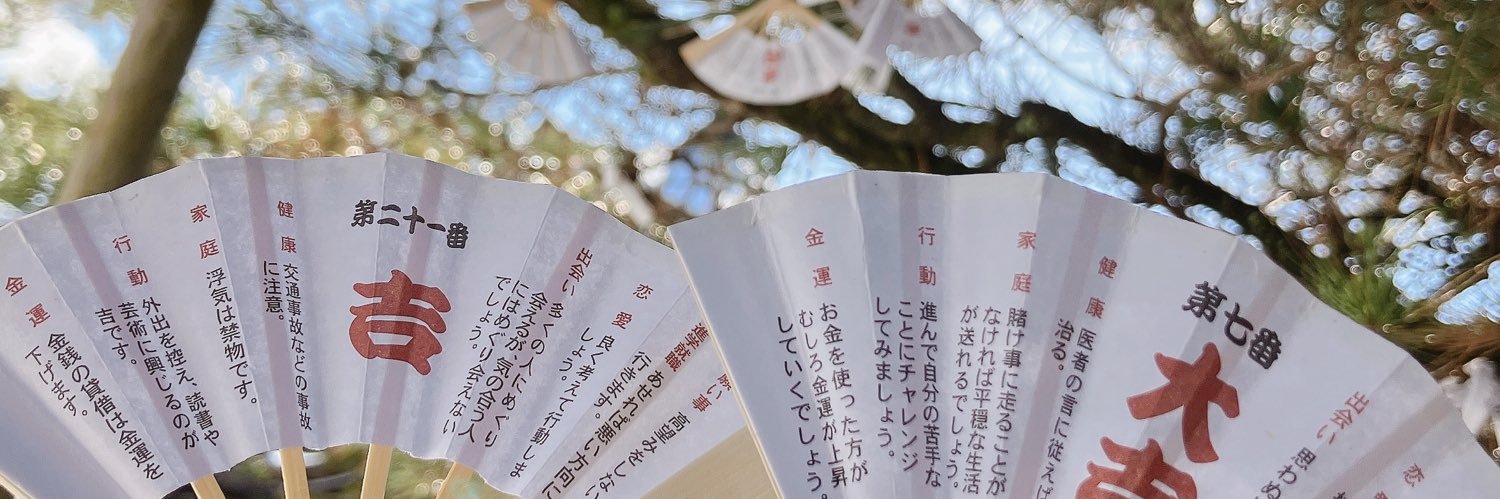 第二十一番
吉
進学就職
あせれば悪い方向に
行きます。
恋愛
良く考えて行動しま
しょう。
出会い
多くの人にめぐり
会えるが、気の合う人
にはめぐり会えない
でしょう。
健康
交通事故などの事故
に注意。
家庭
浮気は禁物です。
行動
外出を控え、読書や
芸術に興じるのが
吉です。
金運
金銭の貸借は金運を
下げます。
願い事
高望みをしない
第七番
大吉
恋
出会い
思わぬ
健康
医者の言に従えば
治る。
家庭
賭け事に走ることが
なければ平穏な生活
が送れるでしょう。
行動
進んで自分の苦手な
ことにチャレンジ
してみましょう。
金運
お金を使った方が
むしろ金運が上昇
していくでしょう。